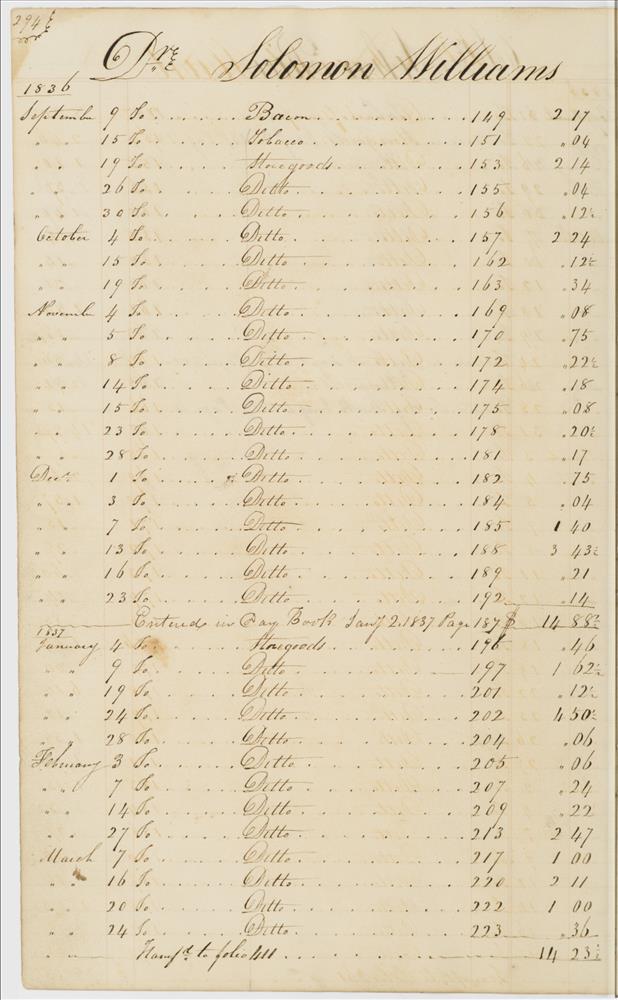 294
Dr. Solomon Williams
1836
September 9 To . . . . . . Bacon . . . . . . . . . 149 2 17
" " 15 To . . . . . . Tobacco . . . . . . . . . 151 " 04
" " 19 To . . . . . . Storegoods . . . . . . . . . 153 2 14
" " 26 To . . . . . . Ditto . . . . . . . . . 155 " 04
" 30 To . . . . . . Ditto . . . . . . . . . 156 " 12½
October 4 To . . . . . . Ditto . . . . . . . . . 157 2 24
" " 15 To . . . . . . Ditto . . . . . . . . . 162 " 12½
" " 19 To . . . . . . Ditto . . . . . . . . . 163 " 34
November 4 To . . . . . . Ditto . . . . . . . . . 169 " 08
" " 5 To . . . . . . Ditto . . . . . . . . . 170 " 75
" " 8 To . . . . . . Ditto . . . . . . . . . 172 " 22½
" " 14 To . . . . . . Ditto . . . . . . . . . 174 " 18
" " 15 To . . . . . . Ditto . . . . . . . . . 175 " 08
" " 23 To . . . . . . Ditto . . . . . . . . . 178 " 20½
" " 28 To . . . . . . Ditto . . . . . . . . . 181 " 17
Decr. 1 To . . . . . . Ditto . . . . . . . . . 182 " 75
" " 3 To . . . . . . Ditto . . . . . . . . . 184 " 04
" " 7 To . . . . . . Ditto . . . . . . . . . 185 1 40
" " 13 To . . . . . . Ditto . . . . . . . . . 188 3 43½
" " 16 To . . . . . . Ditto . . . . . . . . . 189 " 21
" " 23 To . . . . . . Ditto . . . . . . . . . 192 " 14
Entered in Day Book Jany 2. 1837 Page 187 $ 14 88½
1837
January 4 To . . . . . . Storegoods . . . . . . . . . 196 " 46
" " 9 To . . . . . . Ditto . . . . . . . . . 197 1 62½
" " 19 To . . . . . . Ditto . . . . . . . . . 201 " 12½
" " 24 To . . . . . . Ditto . . . . . . . . . 202 4 50½
" " 28 To . . . . . . Ditto . . . . . . . . . 204 " 06
February 3 To . . . . . . Ditto . . . . . . . . . 205 " 06
" " 7 To . . . . . . Ditto . . . . . . . . . 207 " 24
" " 14 To . . . . . . Ditto . . . . . . . . . 209 " 22
" " 27 To . . . . . . Ditto . . . . . . . . . 213 2 47
March 7 To . . . . . . Ditto . . . . . . . . . 217 1 00
" " 16 To . . . . . . Ditto . . . . . . . . . 220 2 11
" " 20 To . . . . . . Ditto . . . . . . . . . 222 1 00
" " 24 To . . . . . . Ditto . . . . . . . . . 223 " 36
" " Transfd. to folio 411 . . . . . . . . . 14 23½